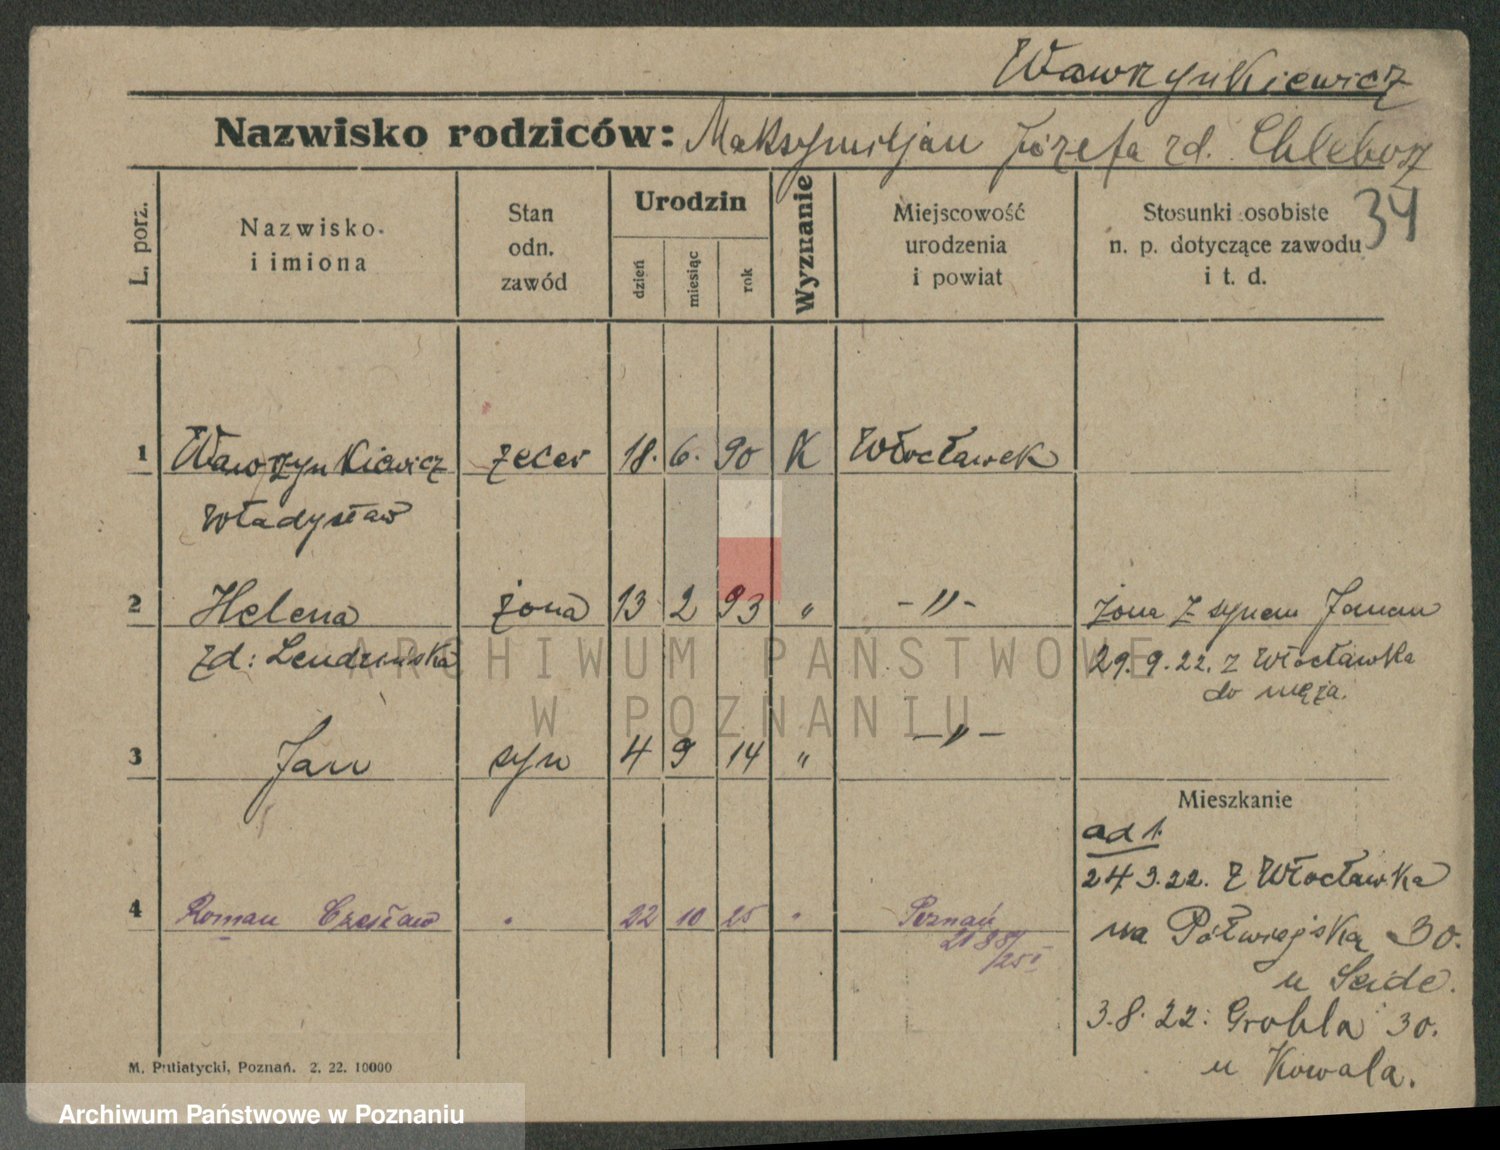 Wawrzynkiewicz
Nazwisko rodziców: Maksymiljan Józefa zd. Chlebosz
34
L. porz.
Nazwisko
i imiona
Stan
odn.
zawód
Urodzin
dzień
miesiąc
rok
Wyznanie
Miejscowość
urodzenia
i powiat
Stosunki osobiste
n. p. dotyczące zawodu
i t. d.
1 Wawrzynkiewicz zecer 18. 6. 90 K Włocławek
Władysław
2 Helena żona 13 2 93 " -"- żona z synem Janem
zd: Lendzińska 29.9.22. z Włocławka
do męża.
3 Jan syn 4 9 14 " -"-
Mieszkanie
ad 1.
24 3.22. z Włocławka
4 Roman Czesław " 22 10 25 " Poznań
na Półwiejską 30.
u Seide.
3.8.22: Grobla 30.
u Kowala.
M. Putiatycki, Poznań. 2. 22. 10000
ARCHIWUM PAŃSTWOWE
W POZNANIU
Archiwum Państwowe w Poznaniu